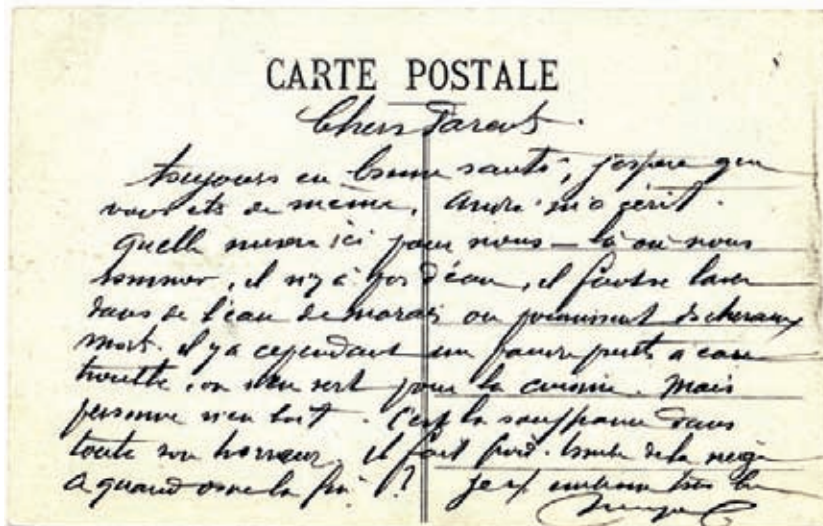 CARTE POSTALE
Chers Parents.
toujours en bonne santé, j'espère que
vous ets de même, André m'a écrit.
quelle misere ici pour nous — là où nous
sommes, il n'y a pas d'eau, il faut se laver
dans de l'eau de marais ou pourrissent ds chevaux
mort. il y a cependant un pauvre puits a eau
on s'en sert pour la cuisine. Mais
personne n'en boit. C'est la souffrance dans
toute son horreur. il fait froid. tombe de la neige
a quand la fin ?